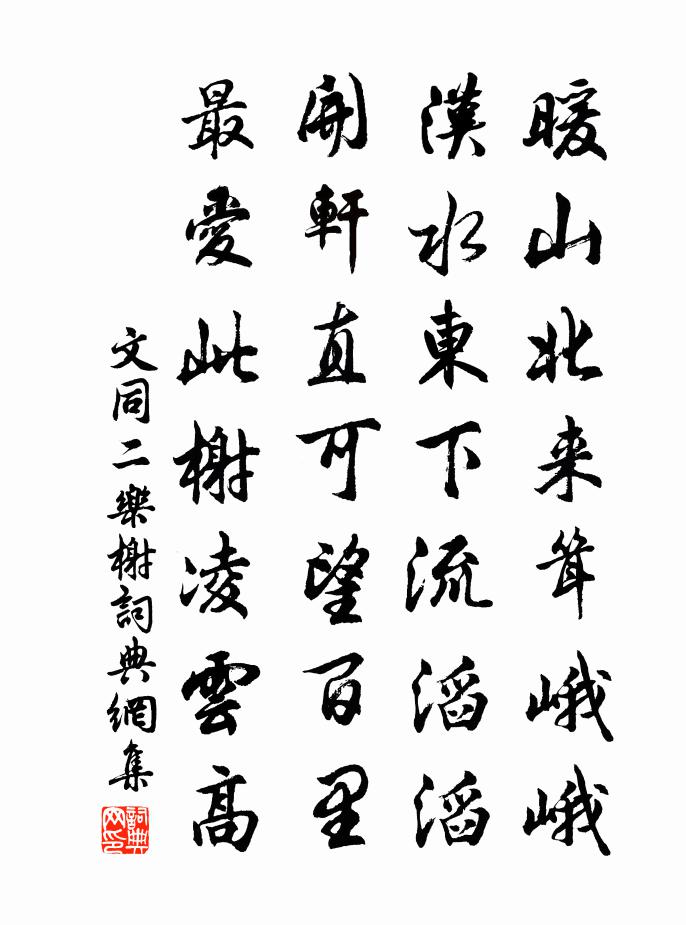 暖山北来耸峨峨
漢水東下流滔滔
開軒直可望百里
最愛此榭凌雲高
文同二樂榭詞典網集
詞典网印